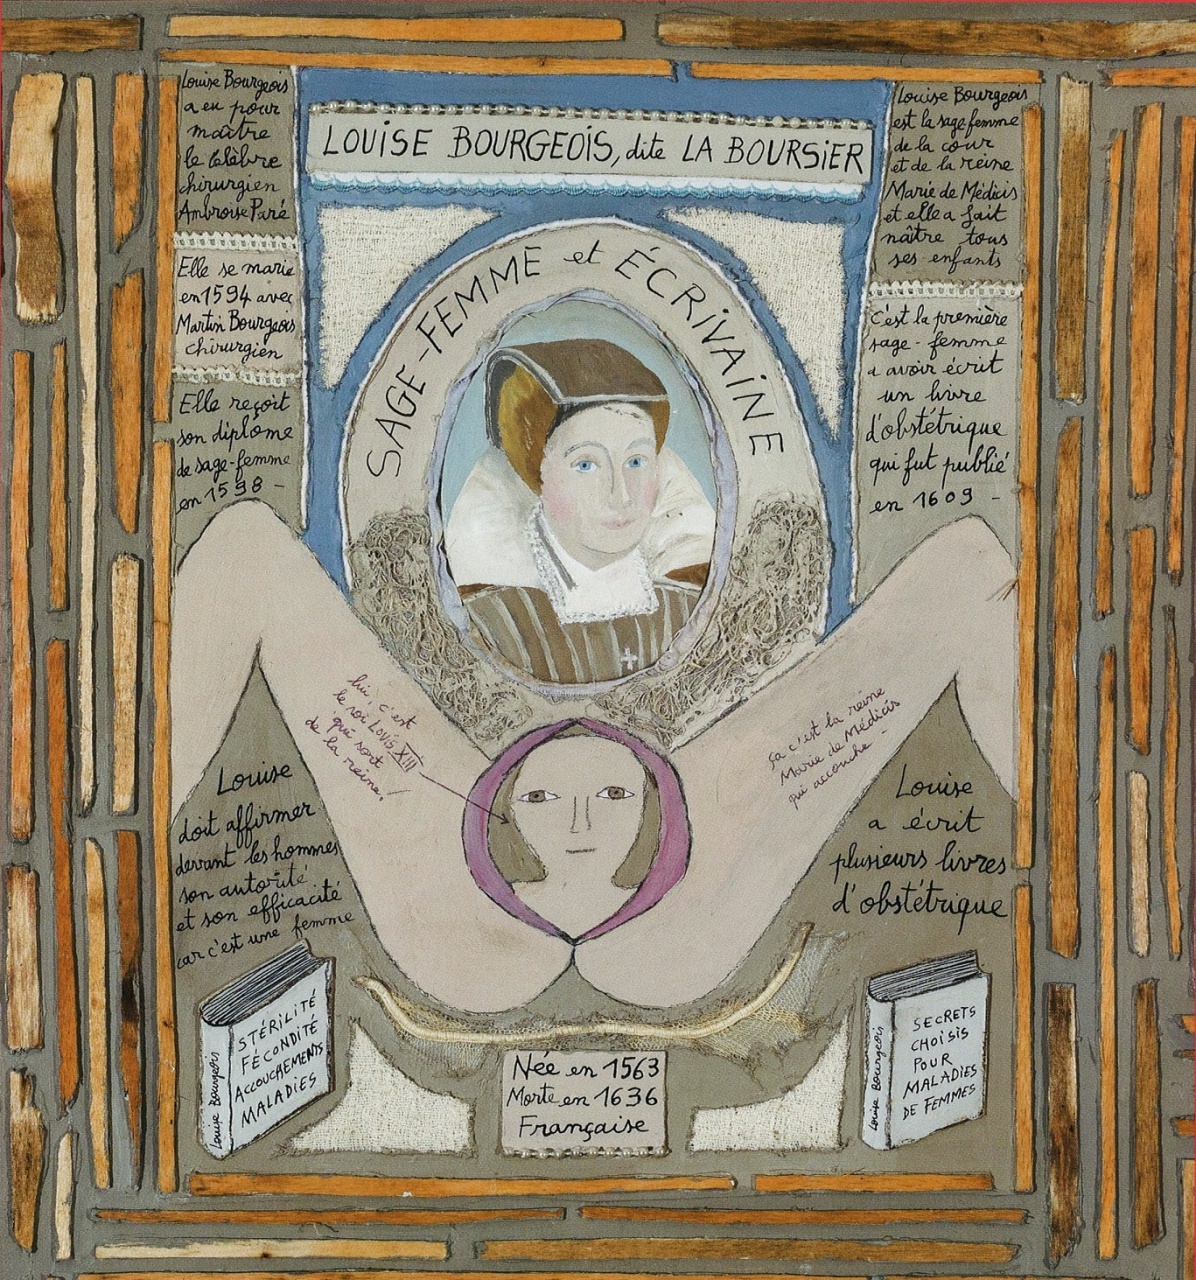 LOUISE BOURGEOIS, dite LA BOURSIER
SAGE-FEMME et ÉCRIVAINE
Louise Bourgeois
a eu pour
maître
le célèbre
chirurgien
Ambroise Paré
Elle se marie
en 1594 avec
Martin Bourgeois
chirurgien
Elle reçoit
son diplôme
de sage-femme
en 1598 -
Louise Bourgeois
est la sage femme
de la cour
et de la reine
Marie de Médicis
et elle a fait
naître tous
ses enfants
c'est la première
sage-femme
a avoir écrit
un livre
d'obstétrique
qui fut publié
en 1609 -
lui, c'est
le roi LOUIS XIII
qui sort
de la reine!
ça c'est la reine
Marie de Médicis
qui accouche -
Louise
doit affirmer
devant les hommes
son autorité
et son efficacité
car c'est une femme
Louise
a écrit
plusieurs livres
d'obstétrique
Louise Bourgeois
STÉRILITÉ
FÉCONDITÉ
ACCOUCHEMENTS
MALADIES
Née en 1563
Morte en 1636
Française
Louise Bourgeois
SECRETS
CHOISIS
POUR
MALADIES
DE FEMMES